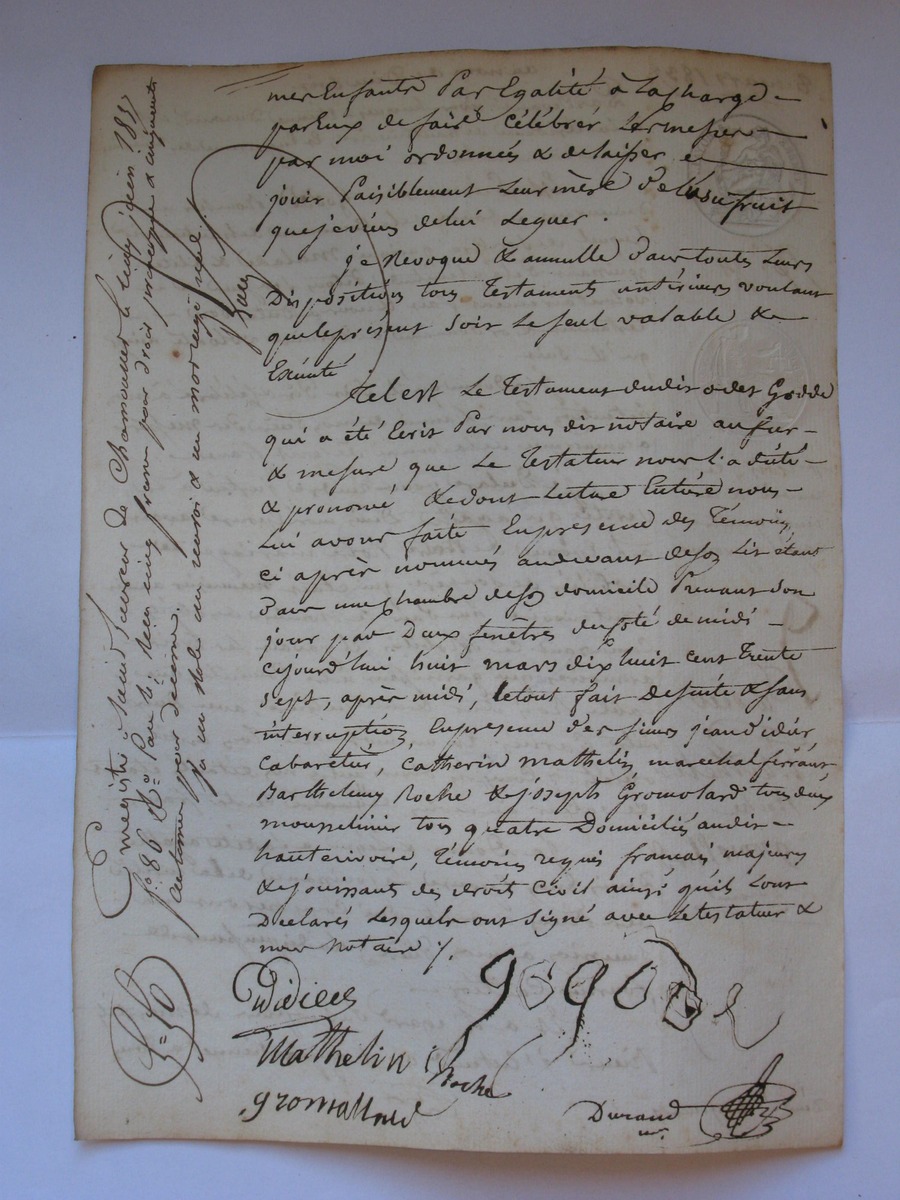 mes Enfants Par Egalité à La charge
par Eux de faire Célébrér Les messes
par moi ordonnées & de laisser
jouir Paisiblement Leur mère de l'usufruit
que je viens de lui Leguer.
je Revoque & annulle
Dispositions tous Testaments antérieurs voulant
que le présent soit Le seul valable &
Exécuté
Tel est Le Testament dudit Godde
qui a été Ecrit Par nous dit notaire au fur
& mesure que Le Testateur nous l'a dicté
& prononcé & de dont Lecture Entière nous
Lui avons faite En presence des Témoins
ci après nommés au devant de son Lit étant
dans une chambre de son domicile Prenant son
jour par Deux fenêtres du côté de midi
Cejourd'hui huit mars dix huit cent Trente
Sept, après midi, Le tout fait de suite & sans
interruption En presence des sieurs jean didier
Cabaretier, Catherin mathelin marechal ferrant
Barthelemy Roche & joseph Gromolard tous deux
mousselinier tous quatre Domiciliés audit
hauterivoire, Témoins requis francais majeurs
& jouissant des droits Civil ainsi qu'ils L'ont
Déclarés Lesquels ont Signé avec Le testateur &
nous Notaire ./.
Didiee
Mathelin
Roche
gromollard
Durand
Enregistré à
f° 86 R° cinq francs pour droit &
centimes pour decime.